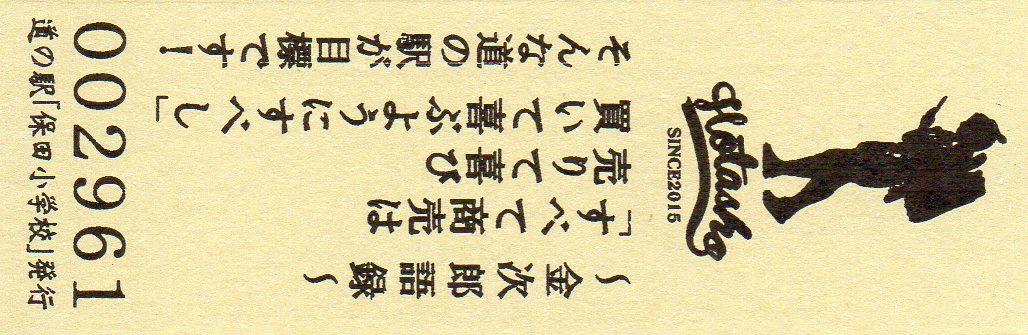 ～金次郎語録～
「すべて商売は
売りて喜び
買いて喜ぶようにすべし」
そんな道の駅が目標です！
Hotasho
SINCE2015
002961
道の駅「保田小学校」発行